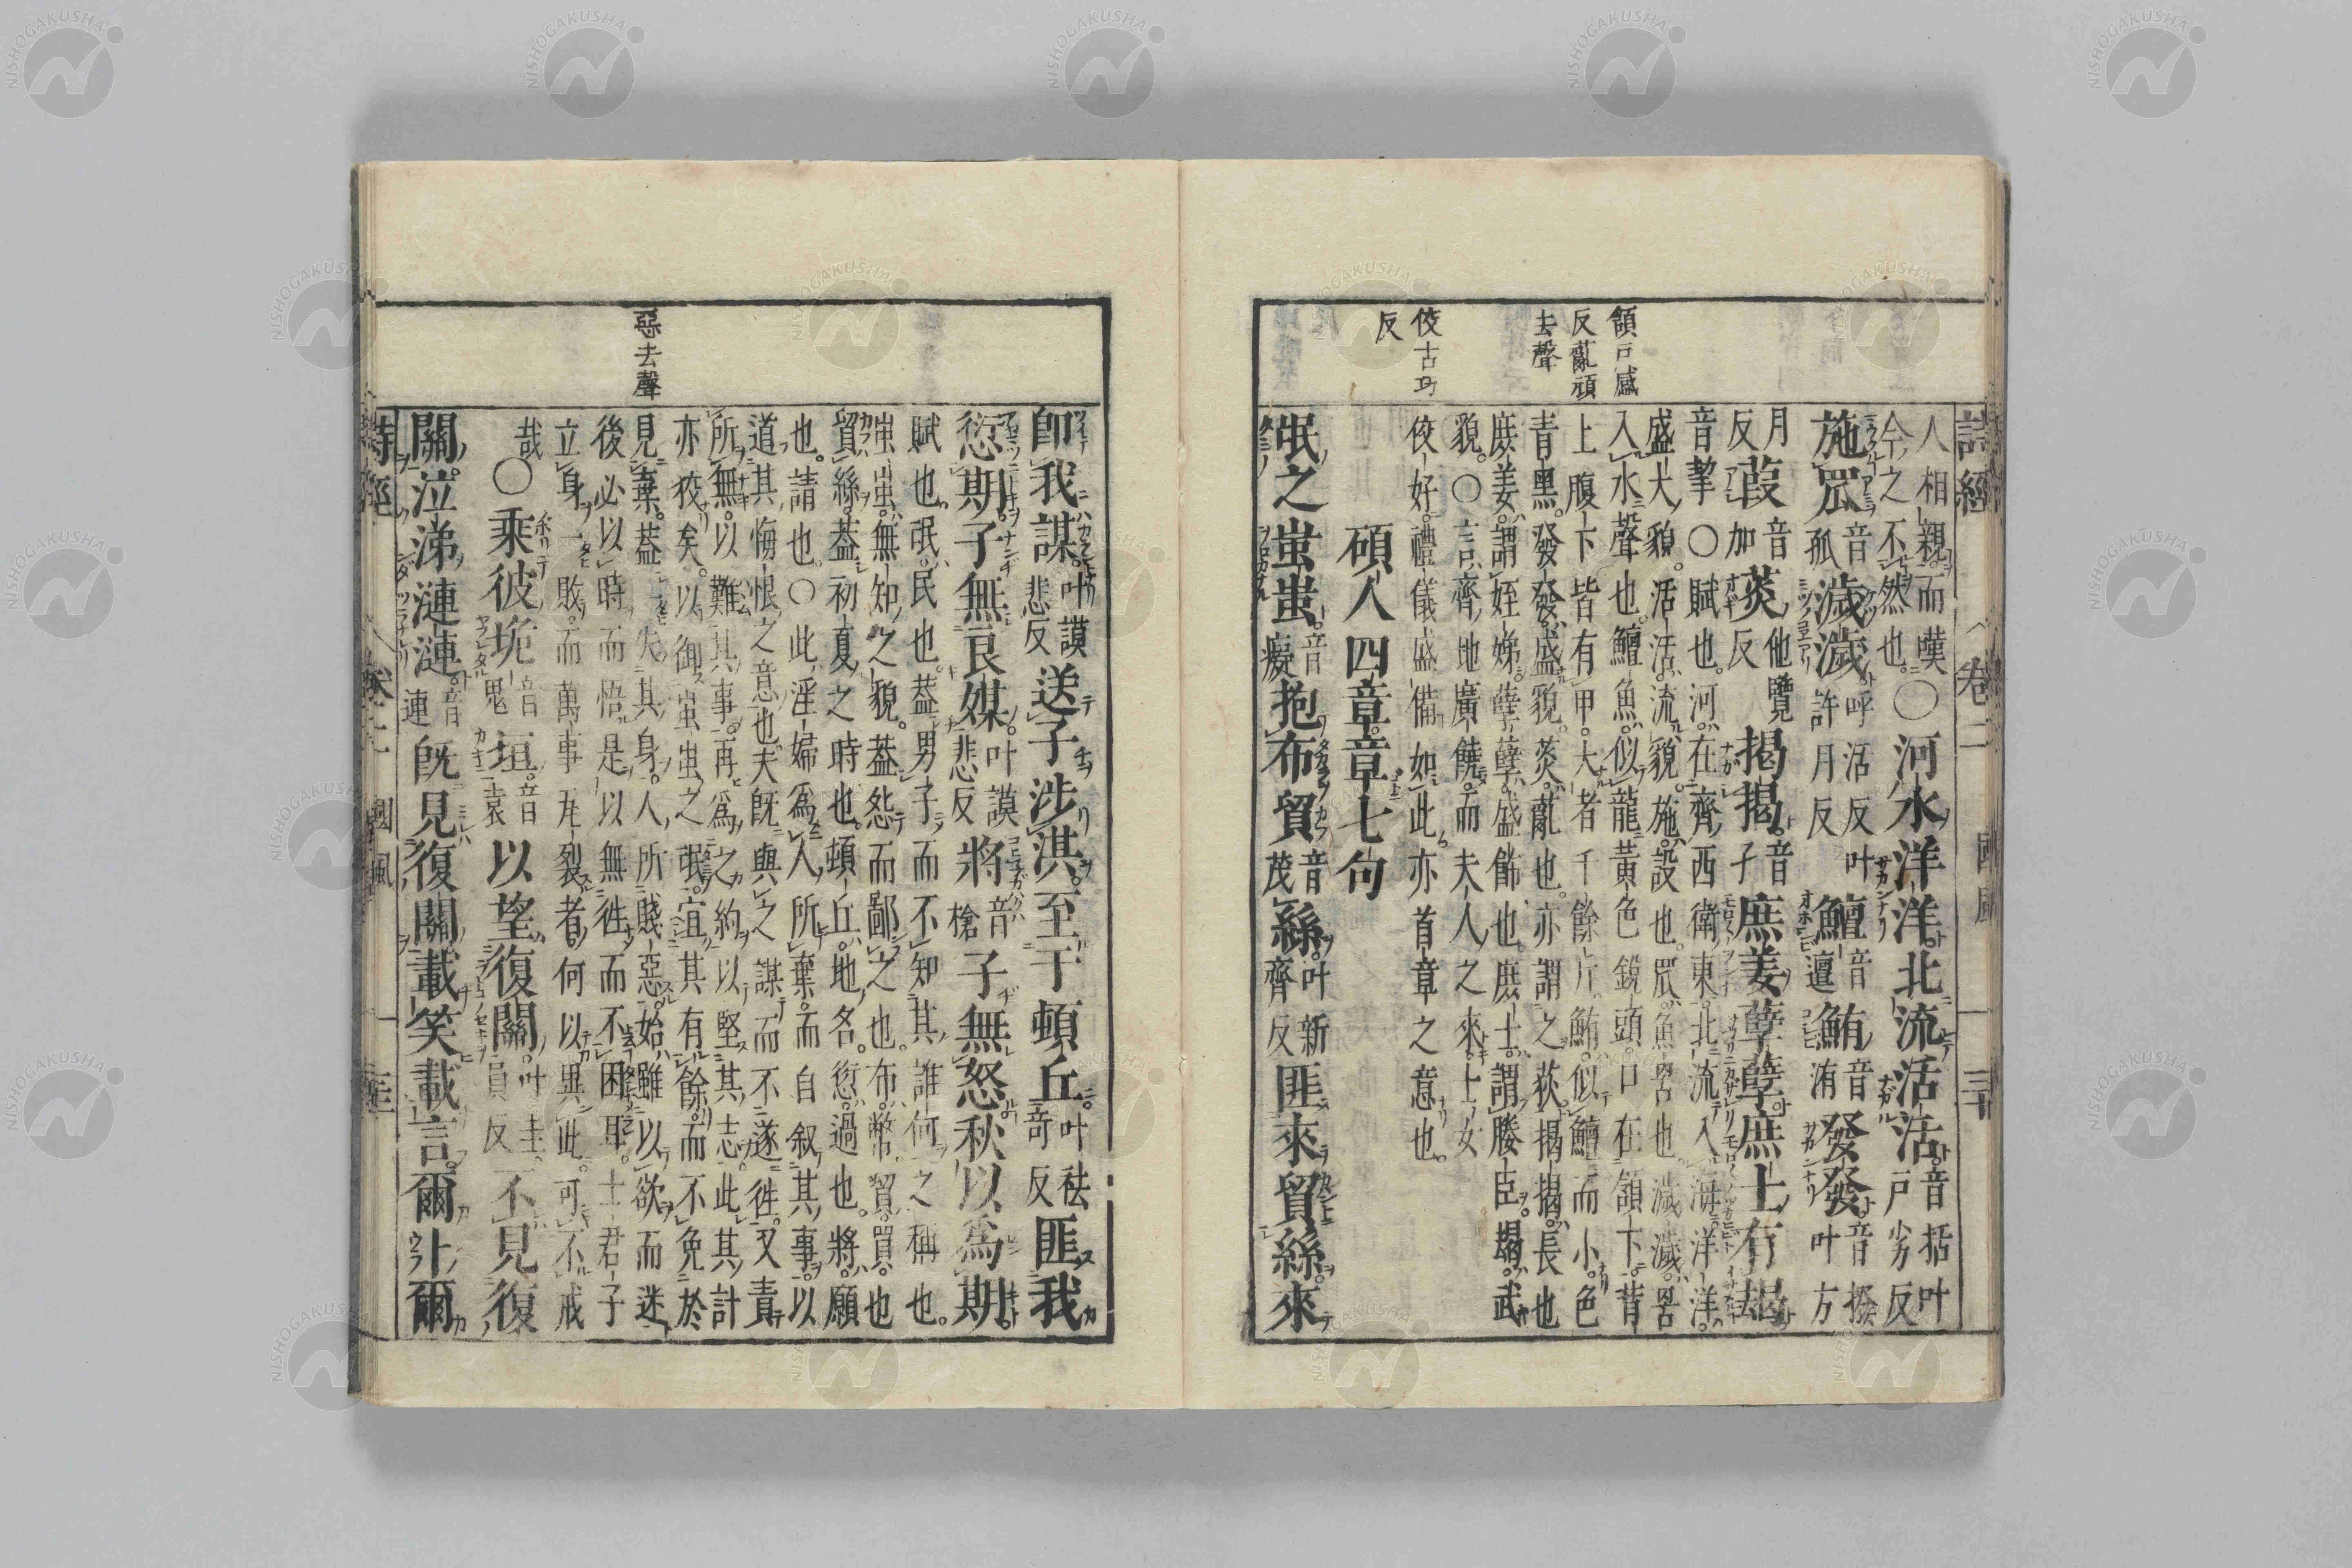 詩經 卷二 國風 三十
頷戸感
反亂頑
去聲
佼古巧
反
人相親而嘆
今之不然也 〇河水洋洋北流活活 音括叶戸劣反
施罛 音孤 濊濊 呼活反叶許月反 鱣 音邅 鮪 音洧 發發 音撥叶方
月反 葭 音加 菼 他覽反 揭揭 音孑 庶姜孽孽庶士有朅
音挈〇賦也河在齊西衛東北流入海洋洋
盛大貌活活流貌施設也罛魚罟也濊濊罟
入水聲也鱣魚似龍黃色銳頭口在頷下背
上腹下皆有甲大者千餘斤鮪似鱣而小色
青黑發發盛貌菼亂也亦謂之荻揭揭長也
庶姜謂姪娣孽孽盛飾也庶士謂媵臣朅武
貌〇言齊地廣饒而夫人之來士女
佼好禮儀盛備如此亦首章之意也
碩人四章章七句
氓之蚩蚩 音癡 抱布貿 音茂 絲 叶新齊反 匪來貿絲來
惡去聲
卽我謀 叶謨悲反 送子涉淇至于頓丘 叶祛奇反 匪我
愆期子無良媒 叶謨悲反 將 音槍 子無怒秋以爲期
賦也氓民也葢男子而不知其誰何之稱也
蚩蚩無知之貌葢怨而鄙之也布幣貿買也
貿絲葢初夏之時也頓丘地名愆過也將願
也請也〇此淫婦爲人所棄而自叙其事以
道其悔恨之意也夫旣與之謀而不遂往又責
所無以難其事再爲之約以堅其志此其計
亦狡矣以御蚩蚩之氓宜其有餘而不免於
見棄葢一失其身人所賤惡始雖以欲而迷
後必以時而悟是以無徃而不困耳士君子
立身一敗而萬事瓦裂者何以異此可不戒
哉〇乘彼垝 音鬼 垣 音袁 以望復關 叶圭員反 不見復
關泣涕漣漣 音連 旣見復關載笑載言爾卜爾
詩經 卷二 國風